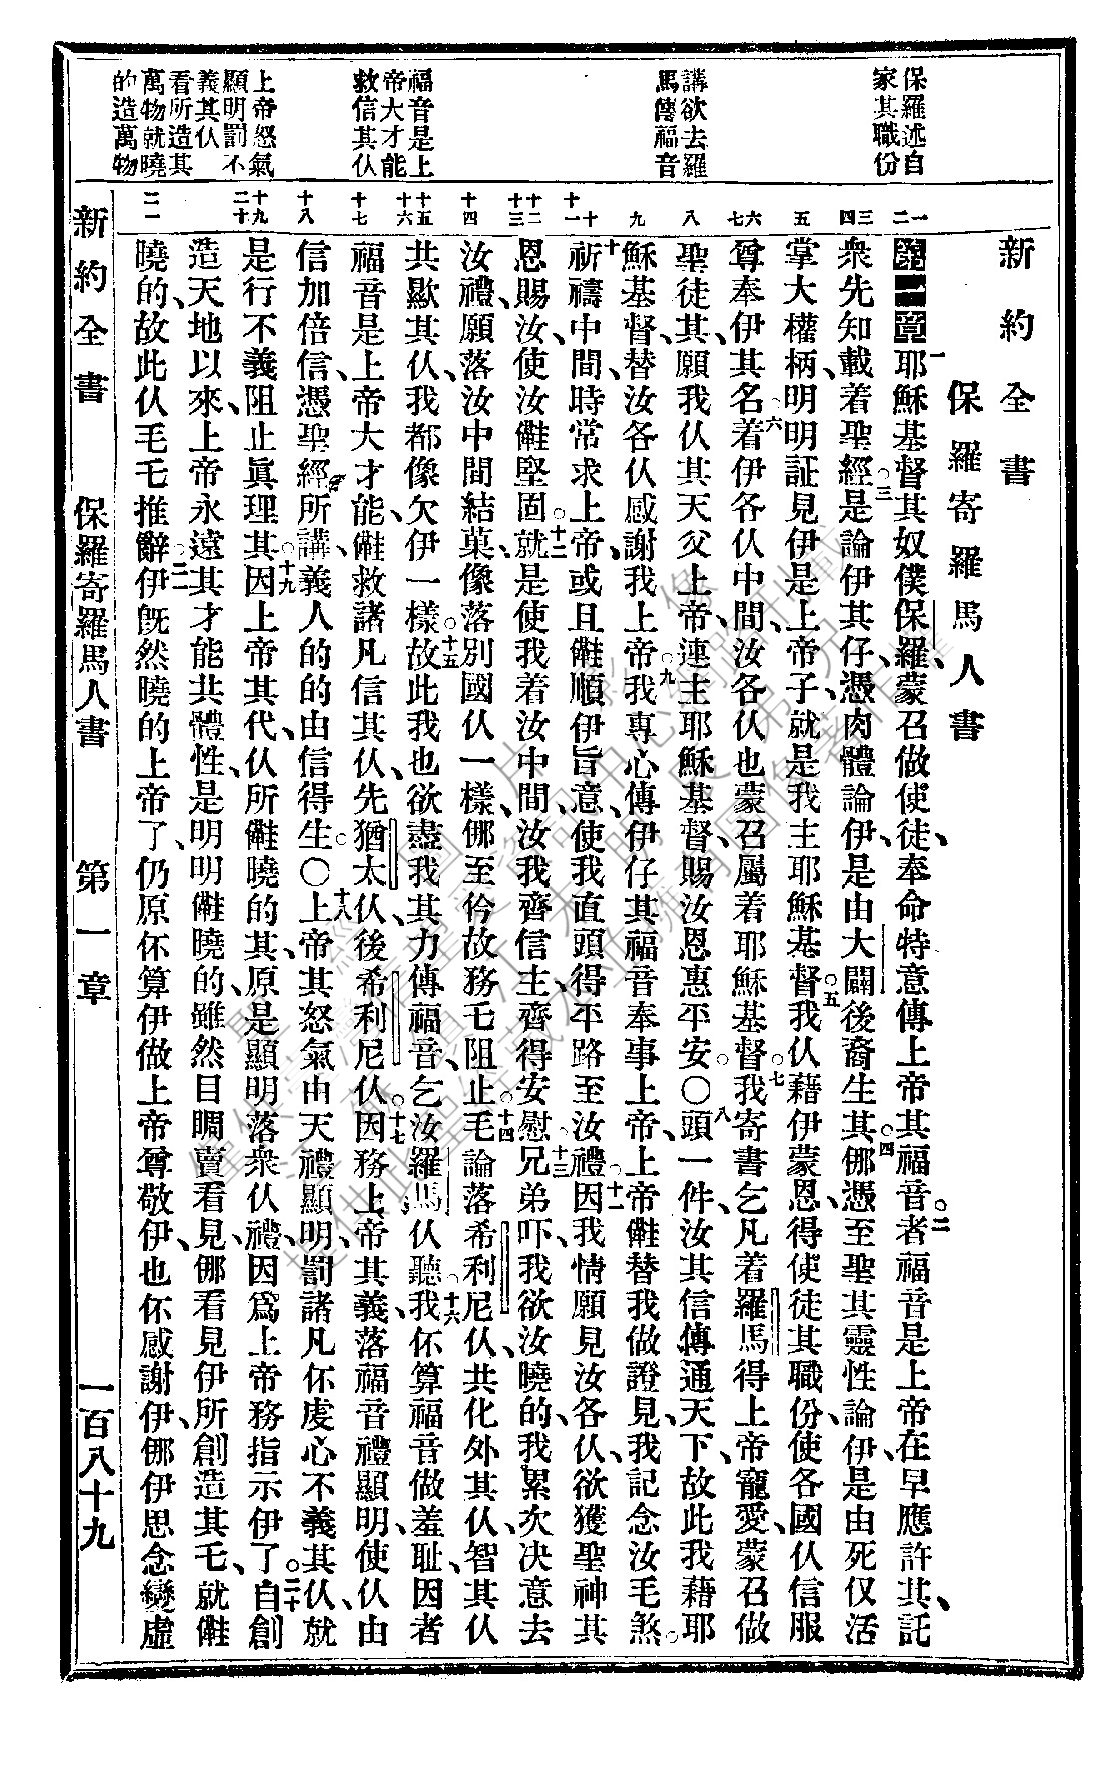 新約全書
保羅寄羅馬人書
保羅述自
家其職份
講欲去羅
馬傳福音
福音是上
帝大才能
救信其仈
上帝怒氣
顯明罰不
義其仈
看所造其
萬物就曉
的造萬物
第一章一耶穌基督其奴僕保羅、蒙召做使徒、奉命特意傳上帝其福音。二者福音是上帝在早應許其、託
衆先知載着聖經。三是論伊其仔、憑肉體論伊、是由大闢後裔生其。四㑚憑至聖其靈性論伊、是由死仅活
掌大權柄、明明証見伊是上帝子、就是我主耶穌基督。五我仈藉伊蒙恩、得使徒其職份、使各國仈信服
尊奉伊其名。六着伊各仈中間、汝各仈也蒙召屬着耶穌基督。七我寄書乞凡着羅馬得上帝寵愛、蒙召做
聖徒其、願我仈其天父上帝、連主耶穌基督、賜汝恩惠平安。〇八頭一件、汝其信傳通天下、故此我藉耶
穌基督、替汝各仈感謝我上帝。九我專心傳伊仔其福音奉事上帝、上帝㑽替我做證見、我記念汝毛煞。
十祈禱中間、時常求上帝、或且㑽順伊旨意、使我直頭得平路至汝禮。十一因我情願見汝各仈、欲獲聖神其
恩賜汝、使汝㑽堅固。十二就是使我着汝中間、汝我齊信主、齊得安慰。十三兄弟吓、我欲汝曉的、我累次决意去
汝禮、願落汝中間結菓、像落別國仈一樣、㑚至伶故務乇阻止。十四毛論落希利尼仈、共化外其仈、智其仈
共獃其仈、我都像欠伊一樣。十五故此我也欲盡我其力、傳福音乞汝羅馬仈聽。十六我伓算福音做羞耻、因者
福音是上帝大才能、㑽救諸凡信其仈、先猶太仈、後希利尼仈。十七因務上帝其義、落福音禮顯明、使仈由
信加倍信、憑聖經所講、義人的的由信得生。〇十八上帝其怒氣由天禮顯明、罰諸凡伓虔心不義其仈、就
是行不義阻止眞理其。十九因上帝其代、仈所㑽曉的其、原是顯明落衆仈禮、因爲上帝務指示伊了。二十自創
造天地以來、上帝永遠其才能共體性、是明明㑽曉的、雖然目睭賣看見、㑚看見伊所創造其乇、就㑽
曉的、故此仈毛乇推辭。二一伊旣然曉的上帝了、仍原伓算伊做上帝尊敬伊、也伓感謝伊、㑚伊思念變虛
新約全書　保羅寄羅馬人書　第一章　一百八十九